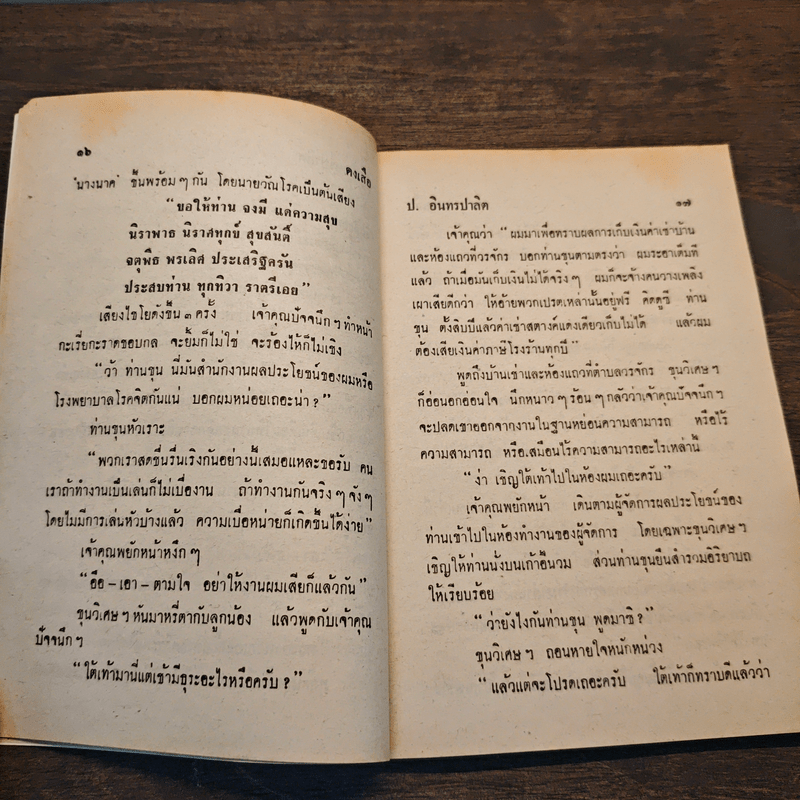 ๑๖
ดงเสือ
"นางนาค" ขึ้นพร้อม ๆ กัน โดยนายวัณโรคเป็นต้นเสียง
"ขอให้ท่าน จงมี แต่ความสุข
นิราพาธ นิราศทุกข์ สุขสันติ์
จตุพิธ พรเลิศ ประเสริฐครัน
ประสบท่าน ทุกทิวา ราตรีเอย"
เสียงไชโยดังขึ้น ๓ ครั้ง เจ้าคุณปัจจนึก ฯ ทำหน้า
กะเรี่ยกะราดชอบกล จะยิ้มก็ไม่ใช่ จะร้องไห้ก็ไม่เชิง
"ว้า ท่านขุน นี่มันสำนักงานผลประโยชน์ของผมหรือ
โรงพยาบาลโรคจิตกันแน่ บอกผมหน่อยเถอะน่า ?"
ท่านขุนหัวเราะ
"พวกเราสดชื่นรื่นเริงกันอย่างนี้เสมอแหละขอรับ คน
เราถ้าทำงานเป็นเล่นก็ไม่เบื่องาน ถ้าทำงานกันจริง ๆ จัง ๆ
โดยไม่มีการเล่นหัวบ้างแล้ว ความเบื่อหน่ายก็เกิดขึ้นได้ง่าย"
เจ้าคุณพยักหน้าหงึก ๆ
"อือ – เอา – ตามใจ อย่าให้งานผมเสียก็แล้วกัน"
ขุนวิเศษ ฯ หันมาหรี่ตากับลูกน้อง แล้วพูดกับเจ้าคุณ
ปัจจนึก ฯ
"ใต้เท้ามานี่แต่เช้ามีธุระอะไรหรือครับ ?"
ป. อินทรปาลิต
๑๗
เจ้าคุณว่า "ผมมาเพื่อทราบผลการเก็บเงินค่าเช่าบ้าน
และห้องแถวที่วรจักร บอกท่านขุนตามตรงว่า ผมระอาเต็มที
แล้ว ถ้าเมื่อมันเก็บเงินไม่ได้จริง ๆ ผมก็จะจ้างคนวางเพลิง
เผาเสียดีกว่า ให้อ้ายพวกเปรตเหล่านั้นอยู่ฟรี คิดดูซี ท่าน
ขุน ตั้งสิบปีแล้วค่าเช่าสตางค์แดงเดียวเก็บไม่ได้ แล้วผม
ต้องเสียเงินค่าภาษีโรงร้านทุกปี"
พูดถึงบ้านเช่าและห้องแถวที่ตำบลวรจักร ขุนวิเศษ ฯ
ก็อ่อนอกอ่อนใจ นึกหนาว ๆ ร้อน ๆ กลัวว่าเจ้าคุณปัจจนึก ฯ
จะปลดเขาออกจากงานในฐานหย่อนความสามารถ หรือไร้
ความสามารถ หรือ.สมือนไร้ความสามารถอะไรเหล่านี้
"ง่า เชิญใต้เท้าไปในห้องผมเถอะครับ"
เจ้าคุณพยักหน้า เดินตามผู้จัดการผลประโยชน์ของ
ท่านเข้าไปในห้องทำงานของผู้จัดการ โดยเฉพาะขุนวิเศษ ฯ
เชิญให้ท่านนั่งบนเก้าอี้นวม ส่วนท่านขุนยืนสำรวมอิริยาบถ
ให้เรียบร้อย
"ว่ายังไงกันท่านขุน พูดมาซิ ?"
ขุนวิเศษ ฯ ถอนหายใจหนักหน่วง
"แล้วแต่จะโปรดเถอะครับ ใต้เท้าก็ทราบดีแล้วว่า